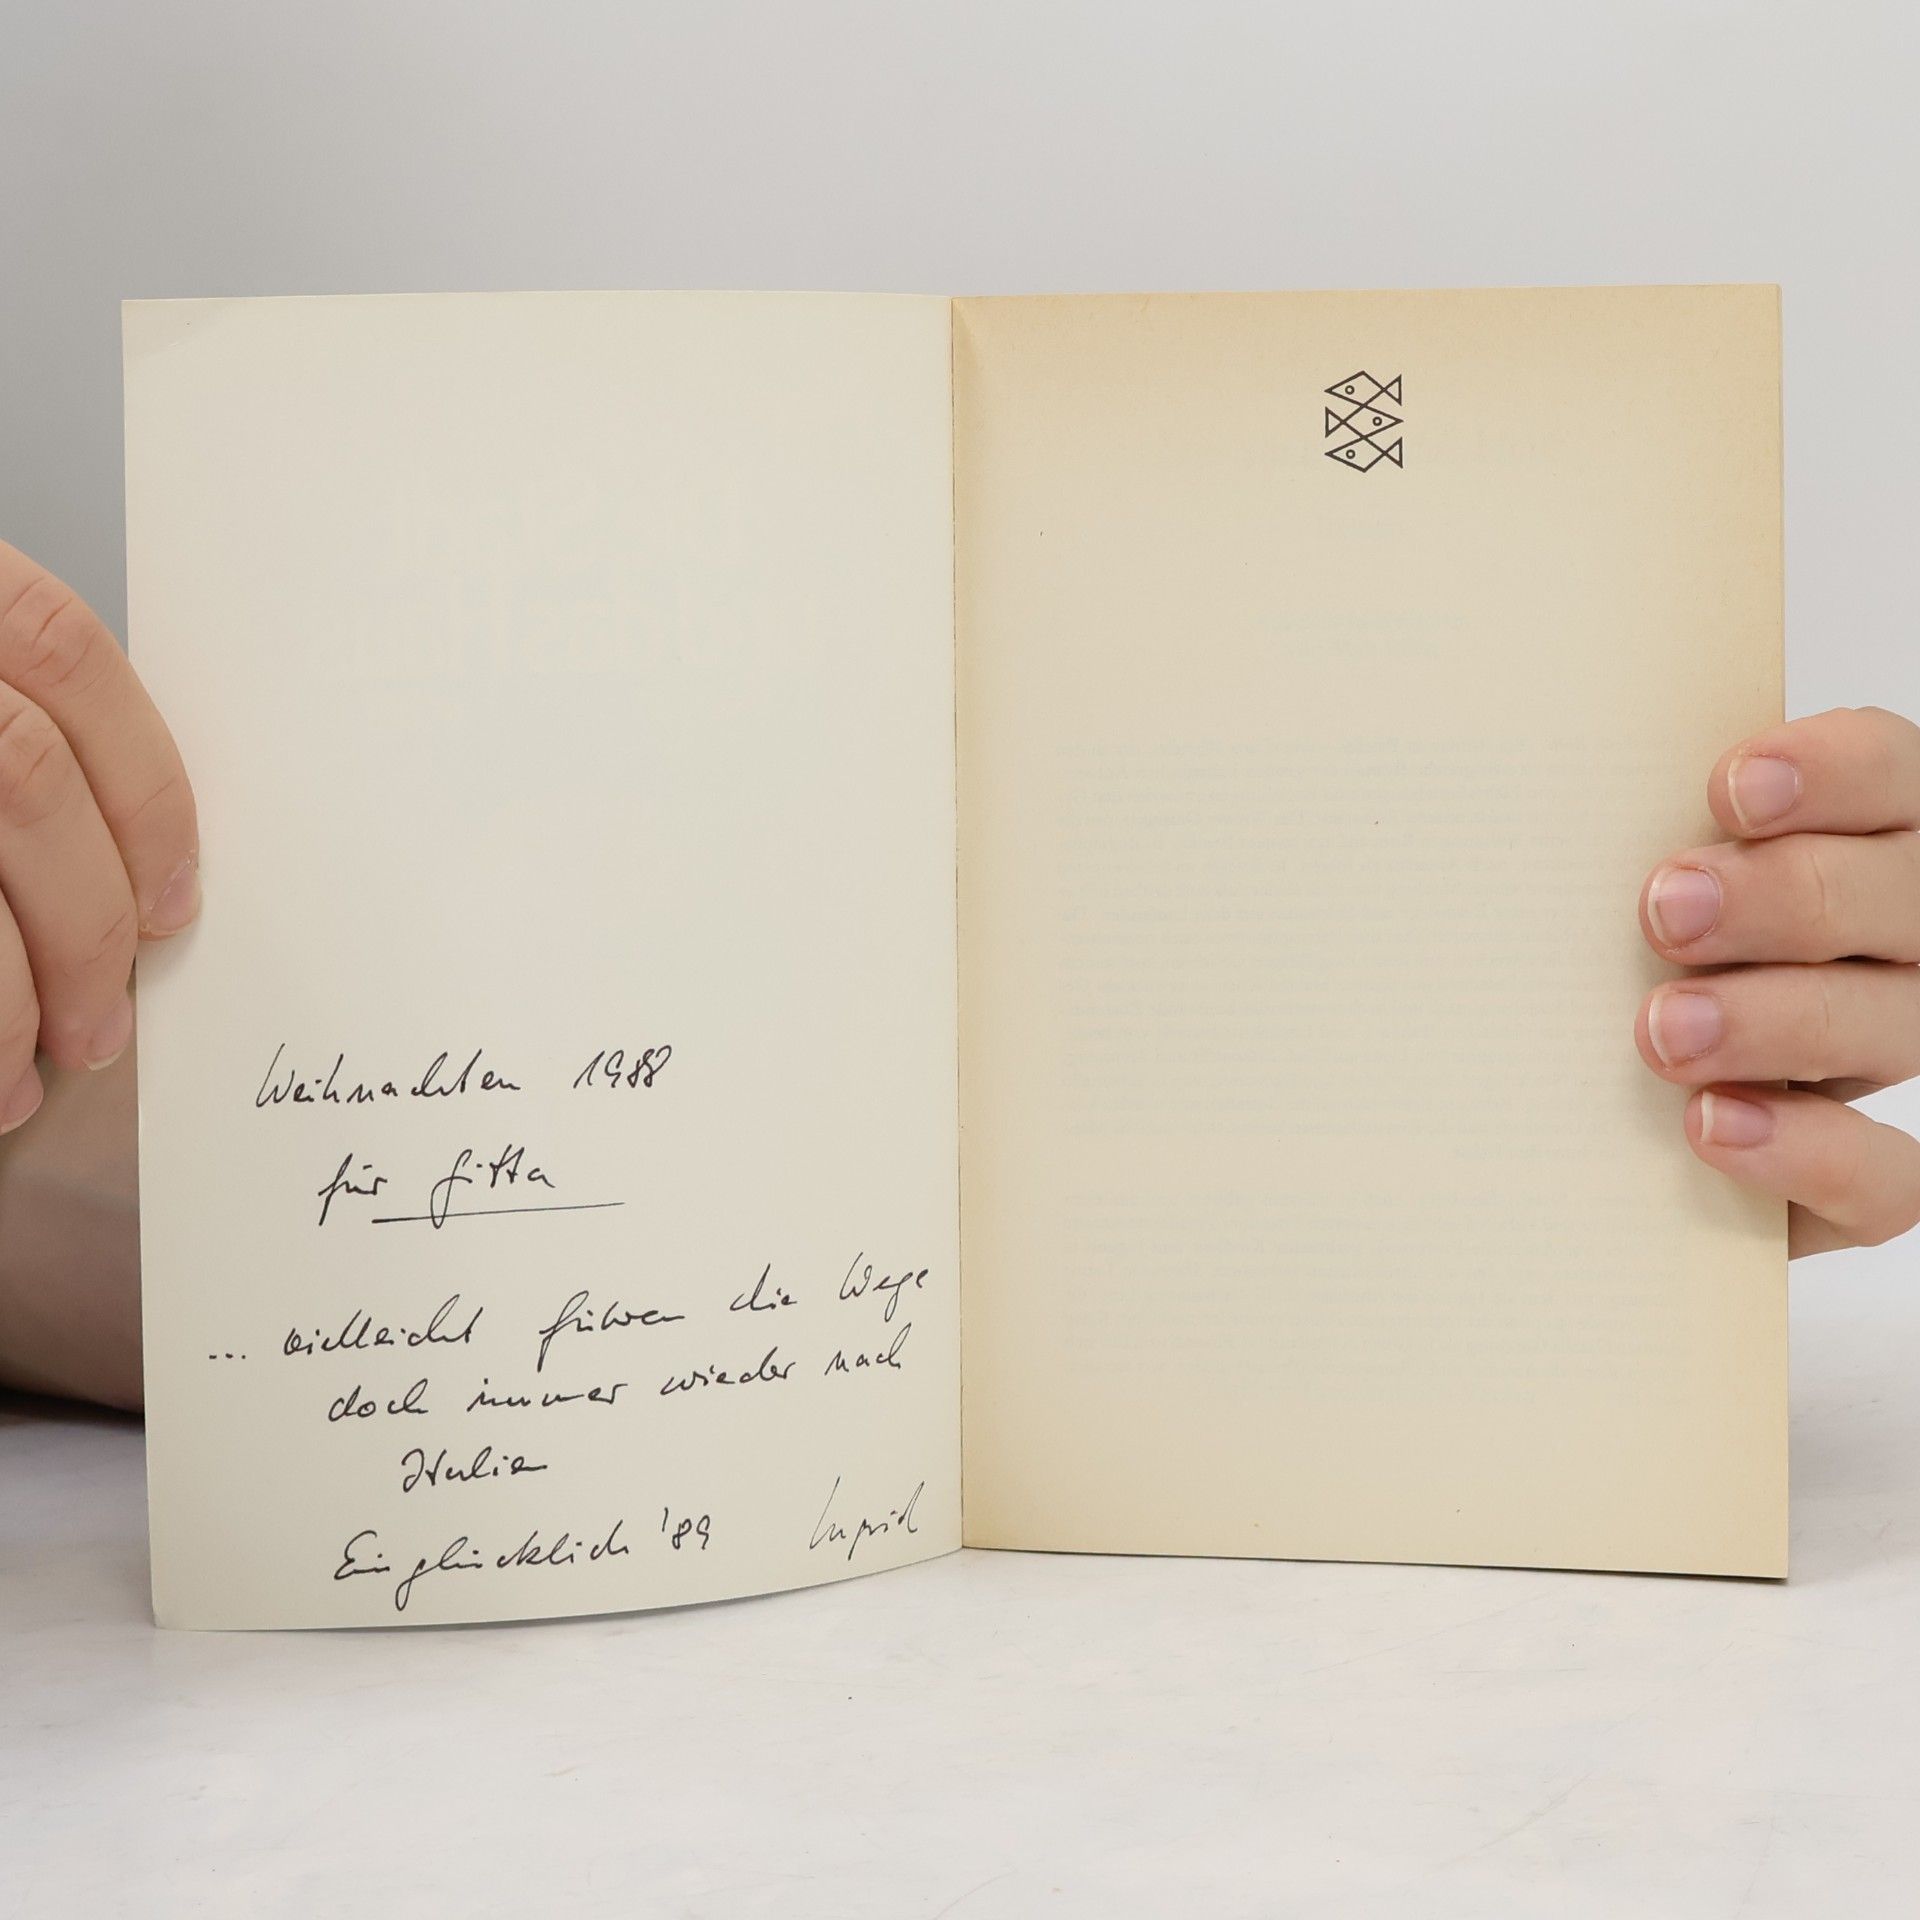 Weihnachten 1988
für Gitta
... vielleicht führen die Wege
doch immer wieder nach
Italien
Ein glücklich '89 Ingrid